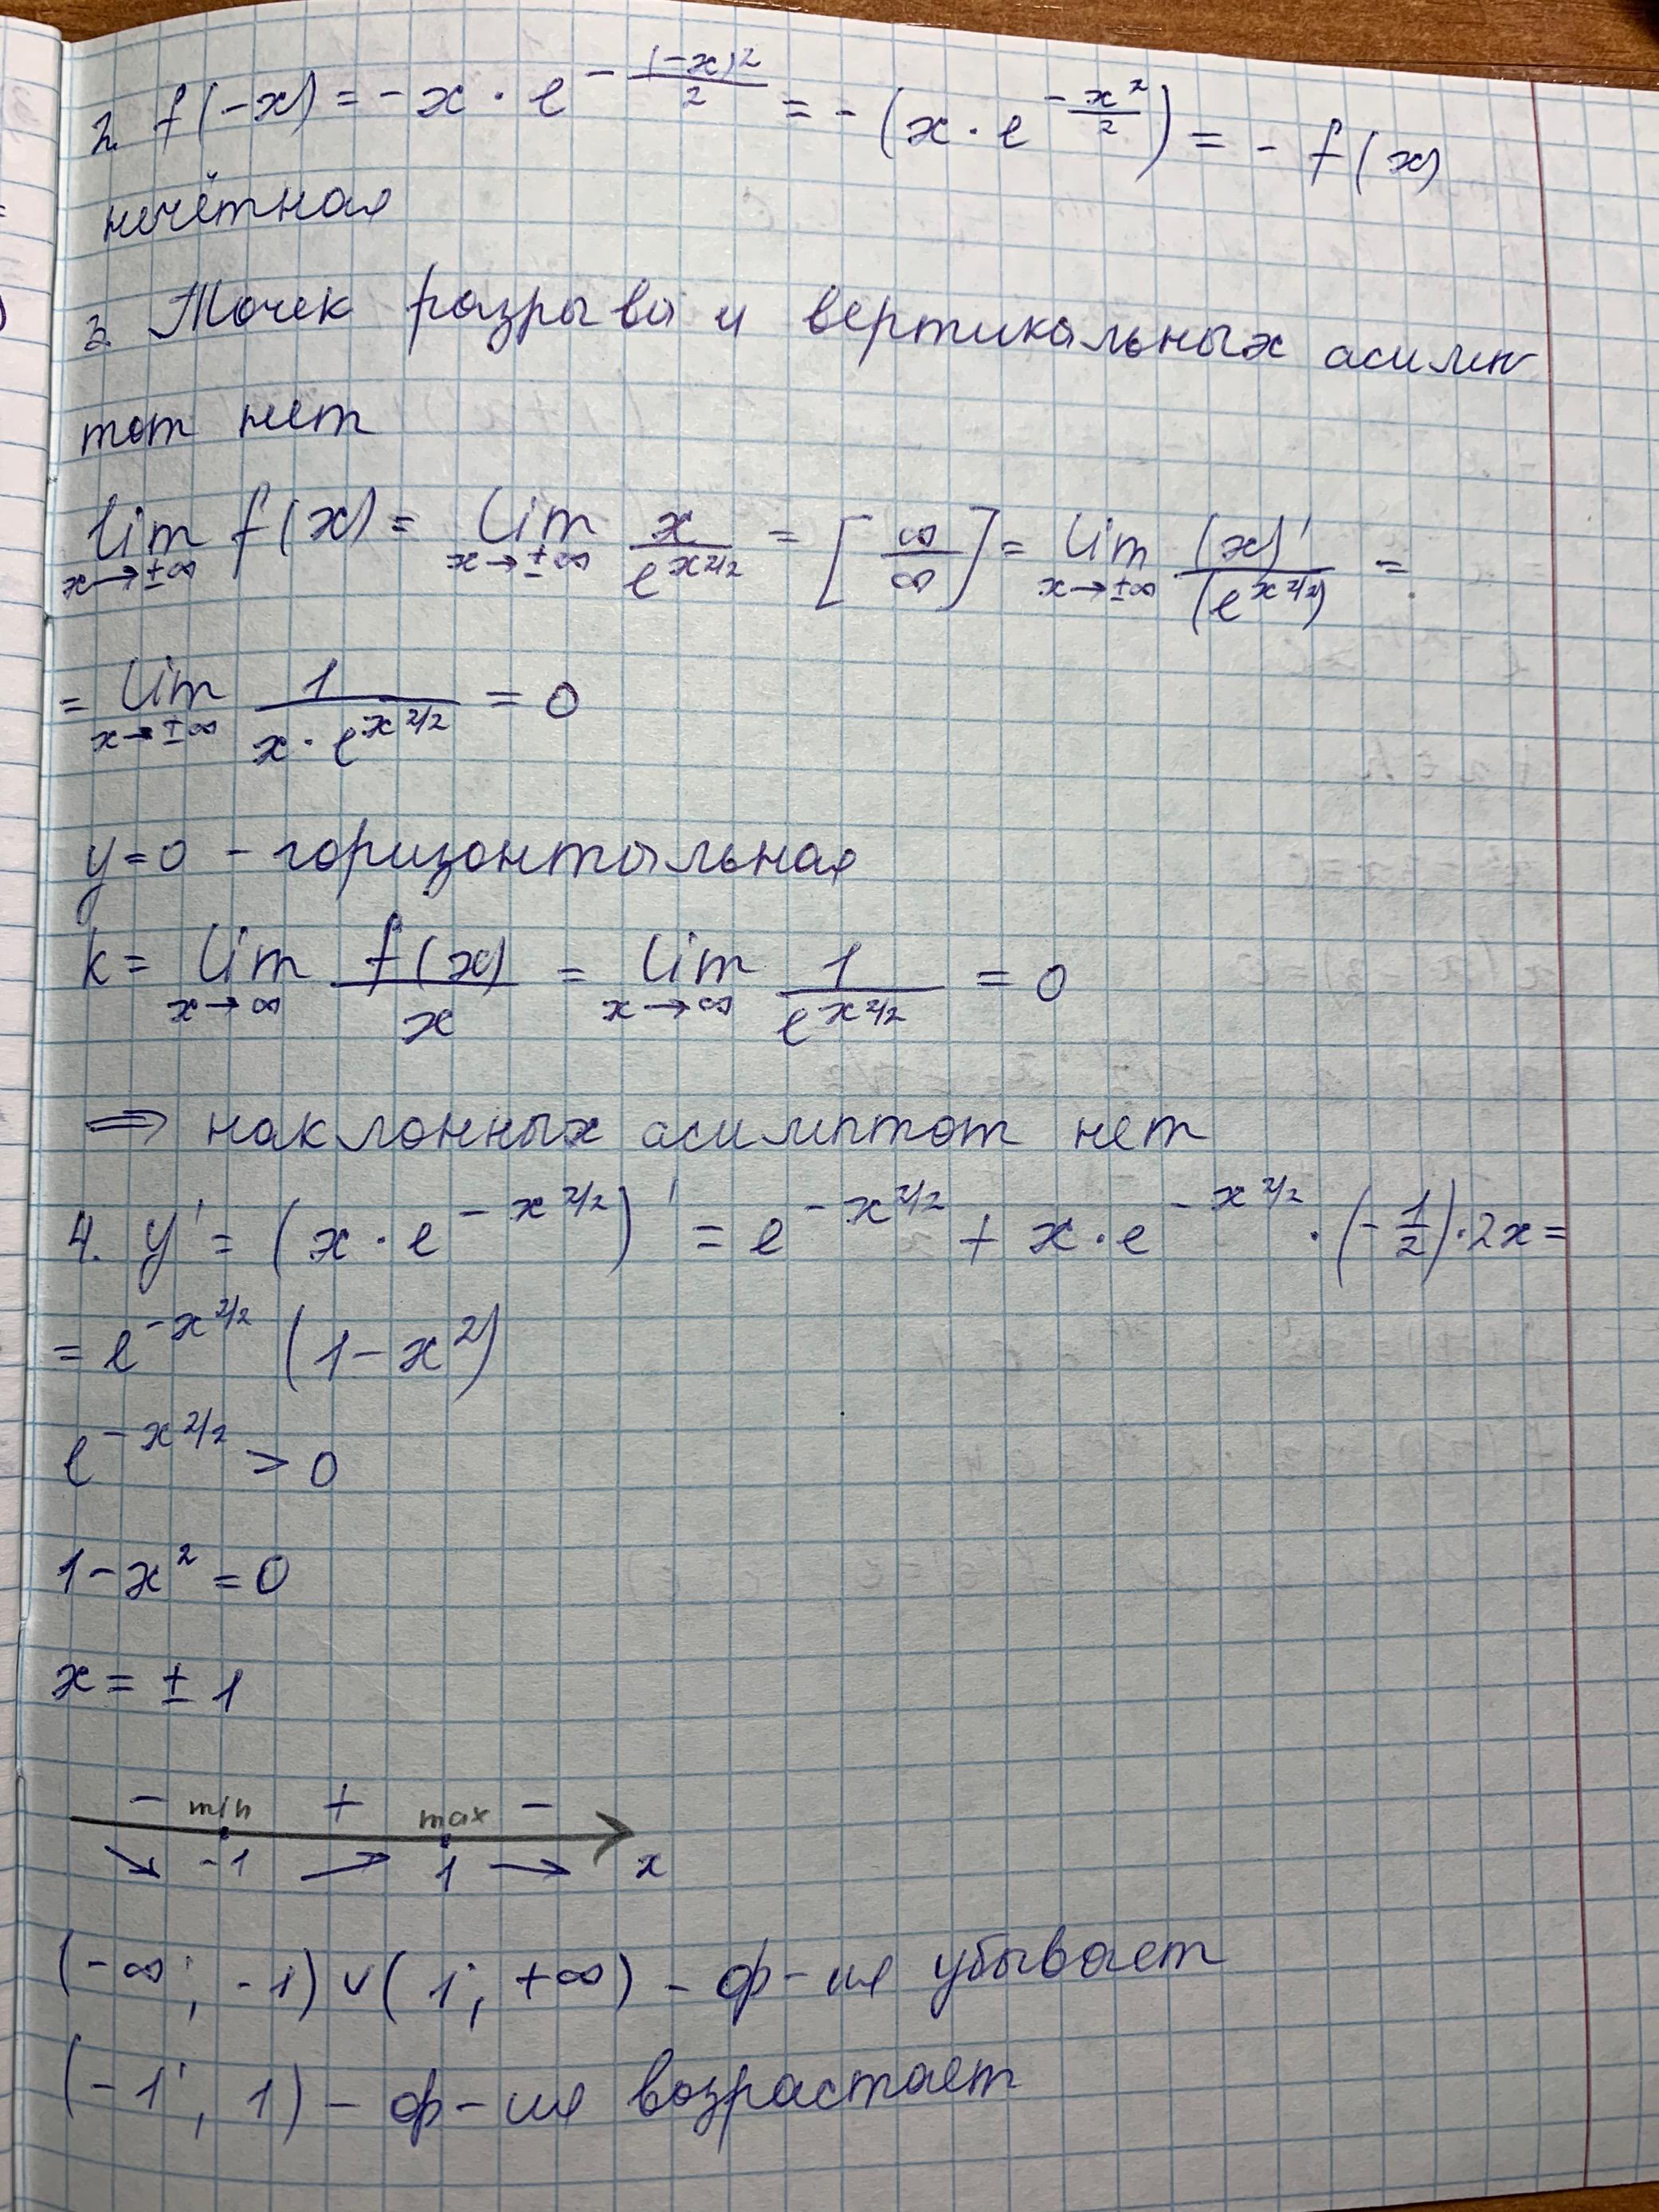 2. f(-x) = -x · e^(-(-x)²/2) = -(x · e^(-x²/2)) = - f(x)
нечётная
3. Точек разрыва и вертикальных асимп
тот нет
lim x→±∞ f(x) = lim x→±∞ x/e^(x²/2) = [∞/∞] = lim x→±∞ (x)'/(e^(x²/2)) =
= lim x→±∞ 1/(x · e^(x²/2)) = 0
y=0 - горизонтальная
k = lim x→∞ f(x)/x = lim x→∞ 1/e^(x²/2) = 0
⇒ наклонных асимптот нет
4. y' = (x · e^(-x²/2))' = e^(-x²/2) + x · e^(-x²/2) · (-1/2) · 2x =
= e^(-x²/2) (1-x²)
e^(-x²/2) > 0
1-x² = 0
x = ± 1
- min + max -
↘ -1 ↗ 1 → x
(-∞; -1) ∨ (1; +∞) - ф-ия убывает
(-1; 1) - ф-ия возрастает